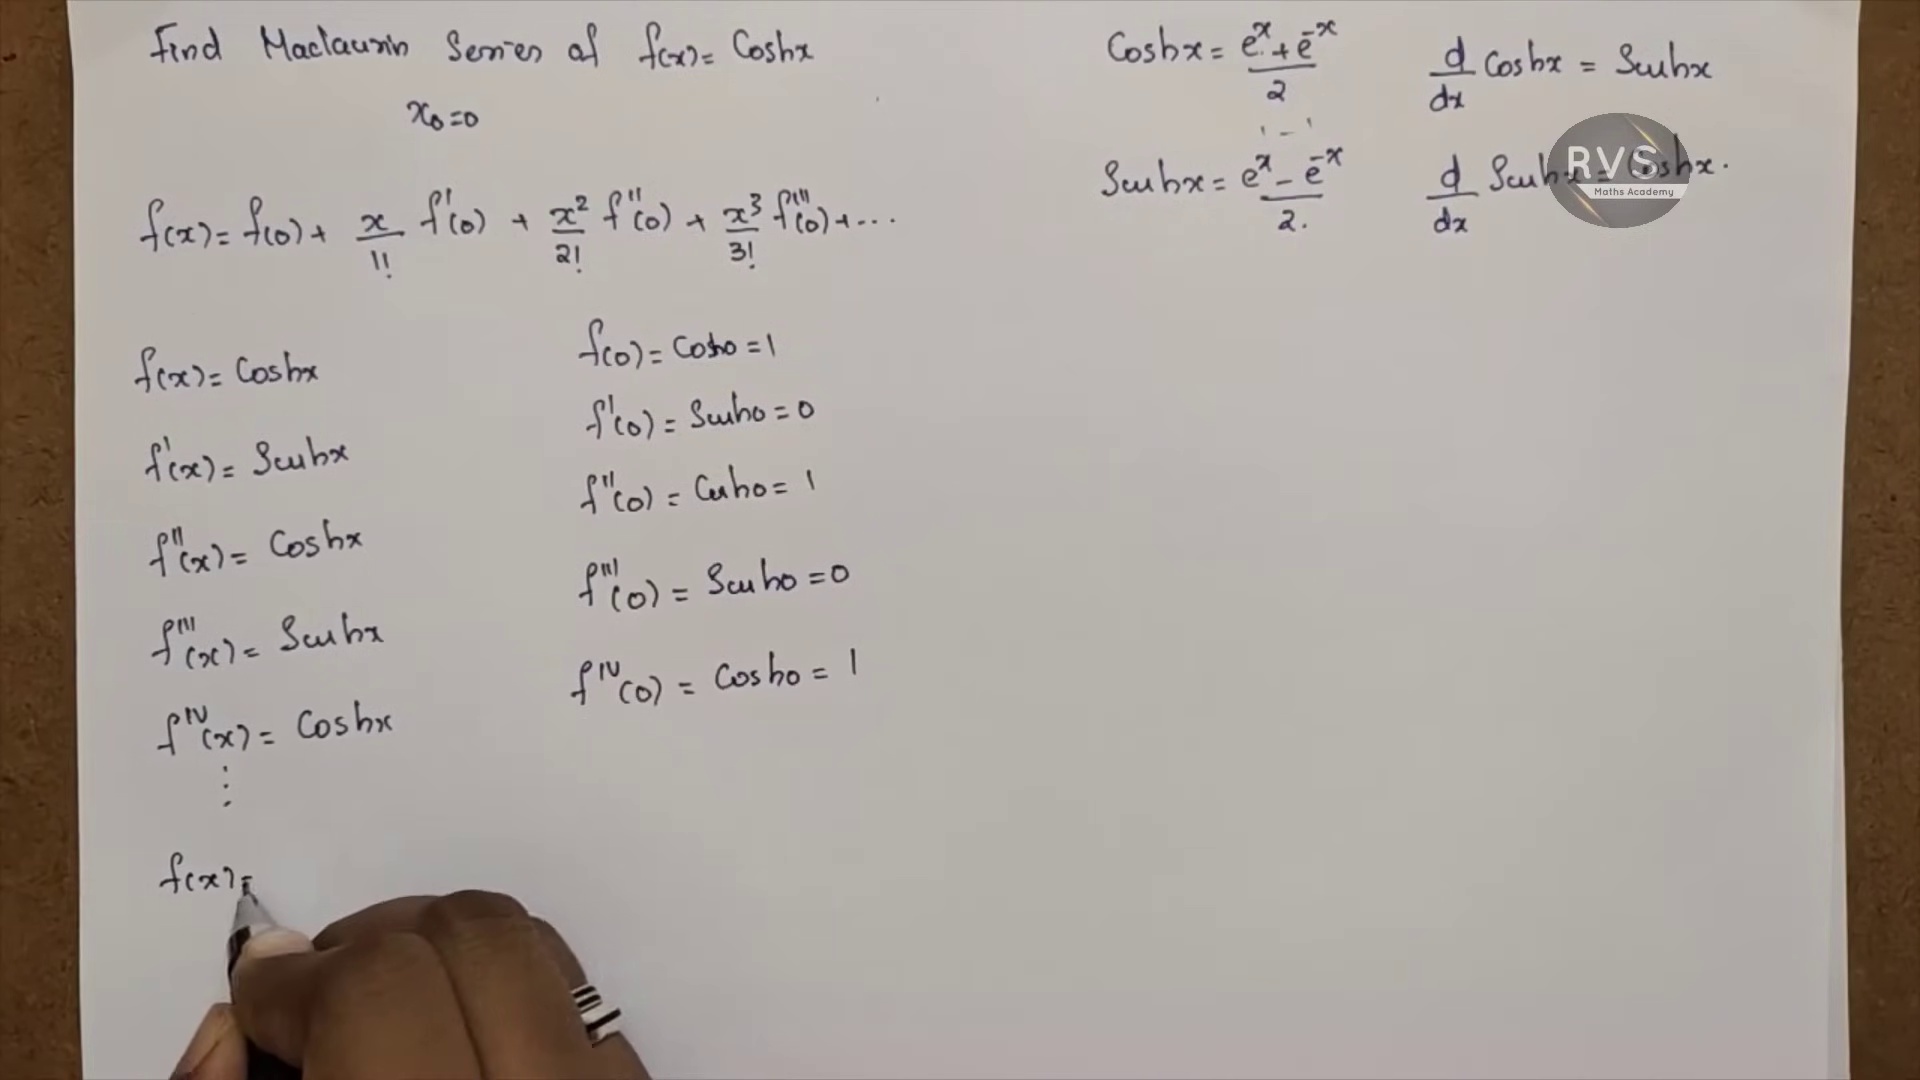 Find Maclaurin Series of f(x) = Coshx
x₀=0
f(x) = f(0) + x/1! f'(0) + x²/2! f''(0) + x³/3! f'''(0) + ...
f(x) = Coshx
f'(x) = Sinhx
f''(x) = Coshx
f'''(x) = Sinhx
f^IV(x) = Coshx
⋮
f(x) =
f(0) = Cosh0 = 1
f'(0) = Sinh0 = 0
f''(0) = Cosh0 = 1
f'''(0) = Sinh0 = 0
f^IV(0) = Cosh0 = 1
Coshx = (eˣ + e⁻ˣ)/2
Sinhx = (eˣ - e⁻ˣ)/2.
d/dx Coshx = Sinhx
d/dx Sinhx = Coshx.
RVS
Maths Academy